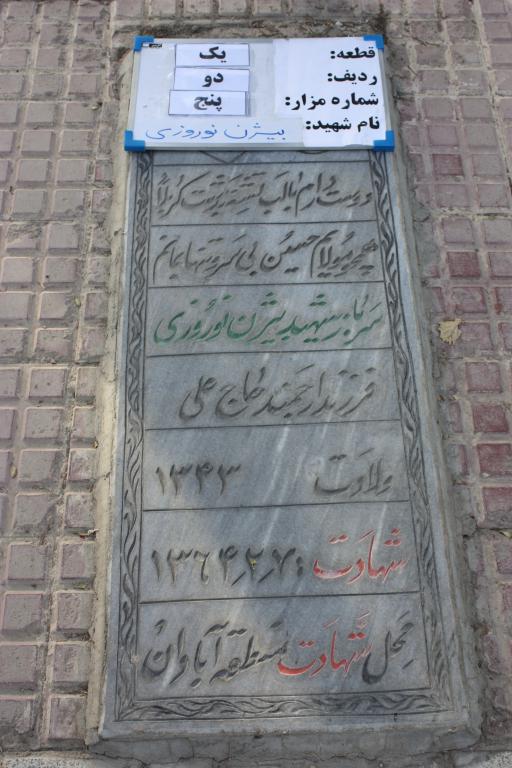 قطعه: یک
ردیف: دو
شماره مزار: پنج
نام شهید: بیژن نوروزی
دوست دارم با لب تشنه به دشت کربلا
همچو مولایم حسین بی سر و تنها بمانم
سرباز شهید بیژن نوروزی
فرزند ارجمند حاج علی
ولادت ۱۳۴۳
شهادت: ۱۳۶۴٫۲٫۷
محل شهادت منطقه آبادان